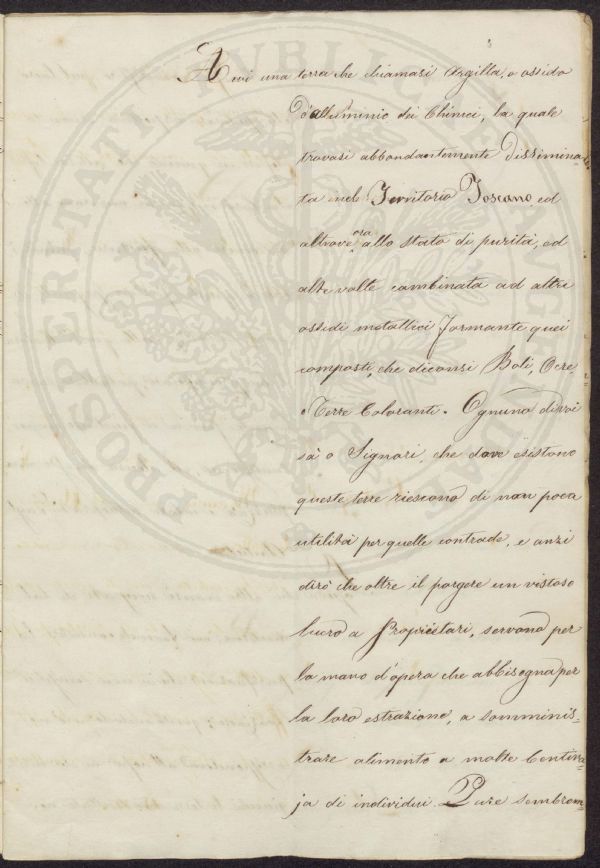 Avvi una terra che chiamasi Argilla, o ossido
d'alluminio dei Chimici, la quale
trovasi abbondantemente Dissimina-
ta nel Territorio Toscano ed
altrove ora allo stato di purità, ed
altre volte combinata ad altri
ossidi metallici formante quei
composti, che diconsi Boli, Ocre,
Terre Coloranti. Ognuno di voi
sà o Signori, che dove esistono
queste terre riescono di non poca
utilità per quelle contrade, e anzi
dirò che oltre il porgere un vistoso
lucro a Proprietari, servono per
la mano d'opera che abbisogna per
la loro estrazione, a somminis-
trare alimento a molte Centina-
ja di individui. Pure sembrom-
PROSPERITATI PUBLICAE